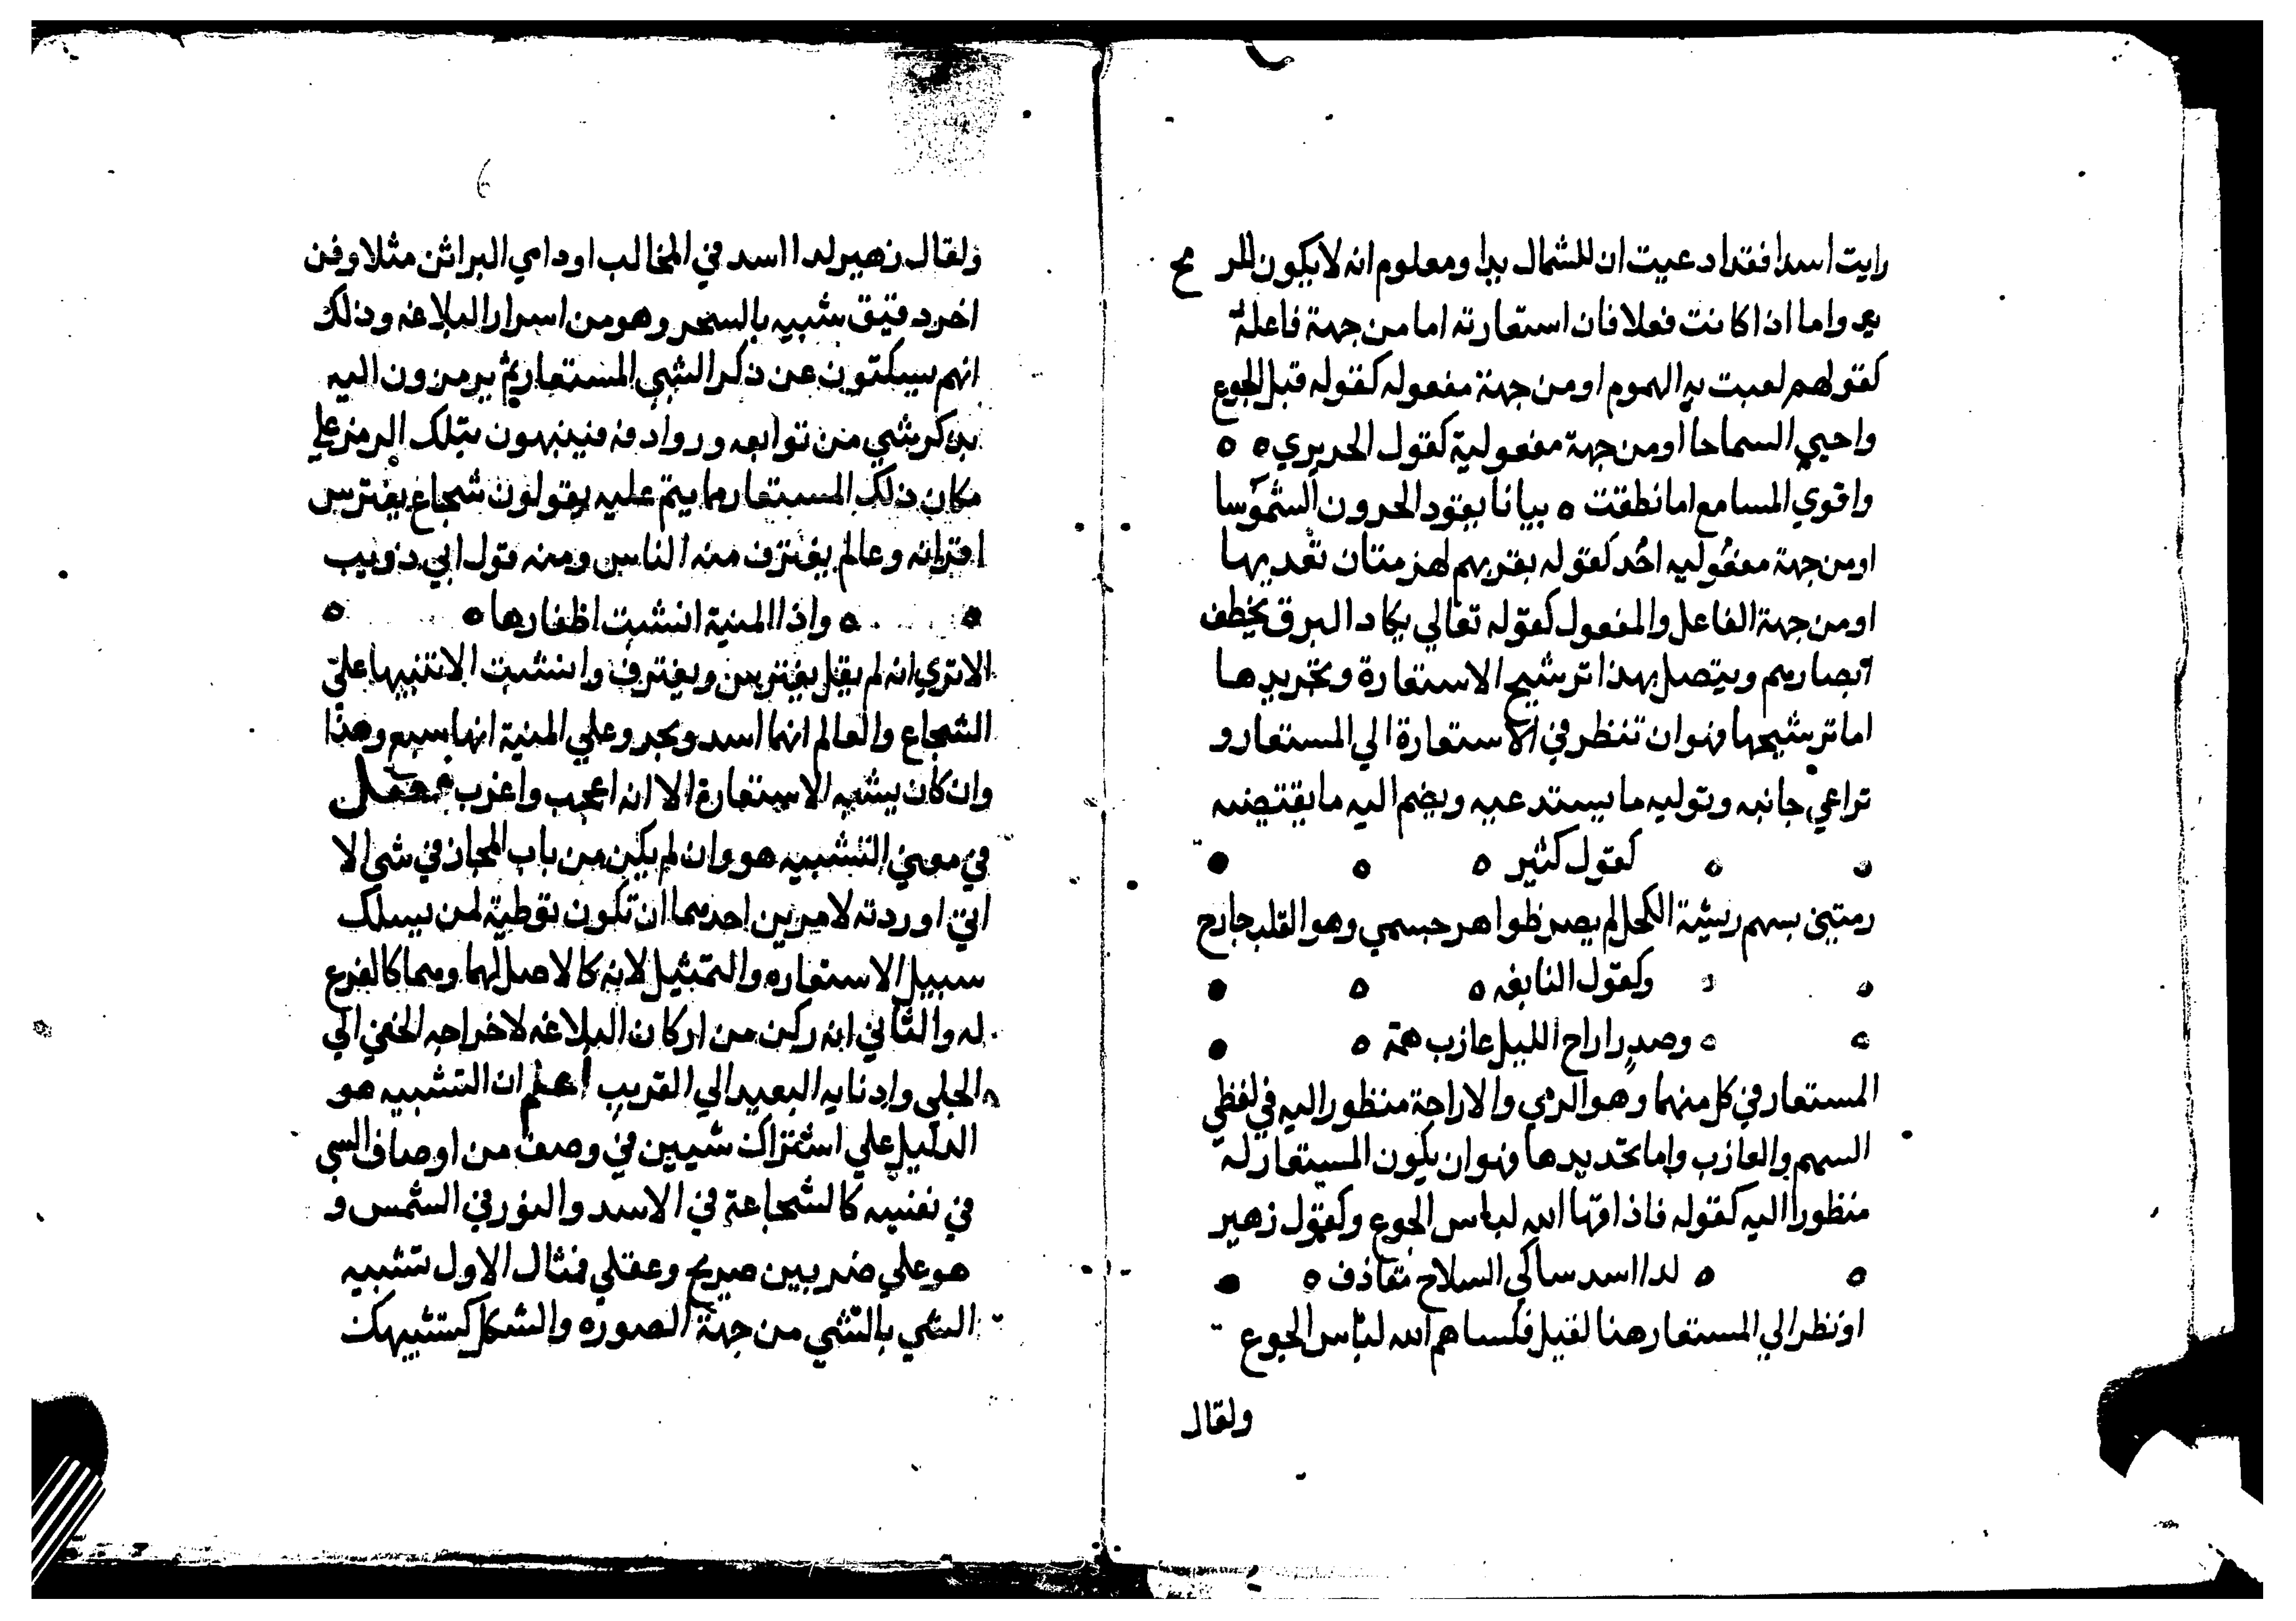 رايت اسدا فقد ادعيت ان للشمال يدا ومعلوم انه لا يكون للر يح
يد واما اذا كانت فعلا فان استعارته اما من جهة فاعله
كقولهم لعبت به الهموم او من جهة مفعوله كقوله قبل الجوع
واحيي السماحا او من جهة مفعولية كقول الحريري ه ه
واقوي المسامع اما نطقت ه بيانا يقود الحرون الشموسا
او من جهة مفعوليه احد كقوله نقريهم لهزمتان نقد بها
او من جهة الفاعل والمفعول كقوله تعالي يكاد البرق يخطف
ابصارهم ويتصل بهذا ترشيح الاستعارة وتجريدها
اما ترشيحها فهو ان تنظر في الاستعارة الي المستعار و
تراعي جانبه وتوليه ما يستدعيه ويضم اليه ما يقتضيه
ه ه كقول كثير ه ه
رمتني بسهم ريشة الكحل لم يصر ظواهر جسمي وهو القلب جارح
وكقول النابغه ه ه
ه ه وصدر اراح الليل عازب همه ه
المستعار في كل منهما وهو الرمي والاراحة منظور اليه في لفظي
السهم والعازب واما تجديدها فهو ان يكون المستعار له
منظورا اليه كقوله فاذاقها الله لباس الجوع وكقول زهير
ه ه لدا اسد ساكي السلاح مقاذف ه
او نظر الي المستعار هنا لقيل فكساهم الله لباس الجوع
ولقال
ولقال زهير لدا اسد في المخالب او دامي البراثن مثلا وفن
اخر دقيق شبيه بالسحر وهو من اسرار البلاغه وذلك
انهم يسكتون عن ذكر الشي المستعار ثم يرمزون اليه
بذكر شي من توابعه وروادفه فينبهون بتلك الرمز علي
مكان ذلك المستعار مما يتم عليه يقولون شجاع يفترس
اقرانه وعالم يغترف منه الناس ومنه قول ابي ذويب
ه ه واذا المنية انشبت اظفارها ه ه
الاتري انه لم يقل يفترس ويغترف وانشبت الا تنبيها علي
الشجاع والعالم انهما اسد وبحر وعلي المنية انها سبع وهذا
وان كان يشبه الاستعارة الا انه اعجب واغرب فصل
في معني التشبيه هو وان لم يكن من باب المجاز في شي الا
اني اوردته لامرين احدهما ان تكون توطية لمن يسلك
سبيل الاستعاره والتمثيل لانه كالاصل لهما وهما كالفرع
له والثاني انه ركن من اركان البلاغه لاخراجه الخفي الي
الجلي وادنايه البعيد الي القريب اعلم ان التشبيه هو
الدليل علي اشتراك شيين في وصف من اوصاف الشي
في نفسه كالشجاعة في الاسد والنور في الشمس و
هو علي ضربين صريح وعقلي فمثال الاول تشبيه
الشي بالشي من جهة الصوره والشكل كتشبيهك